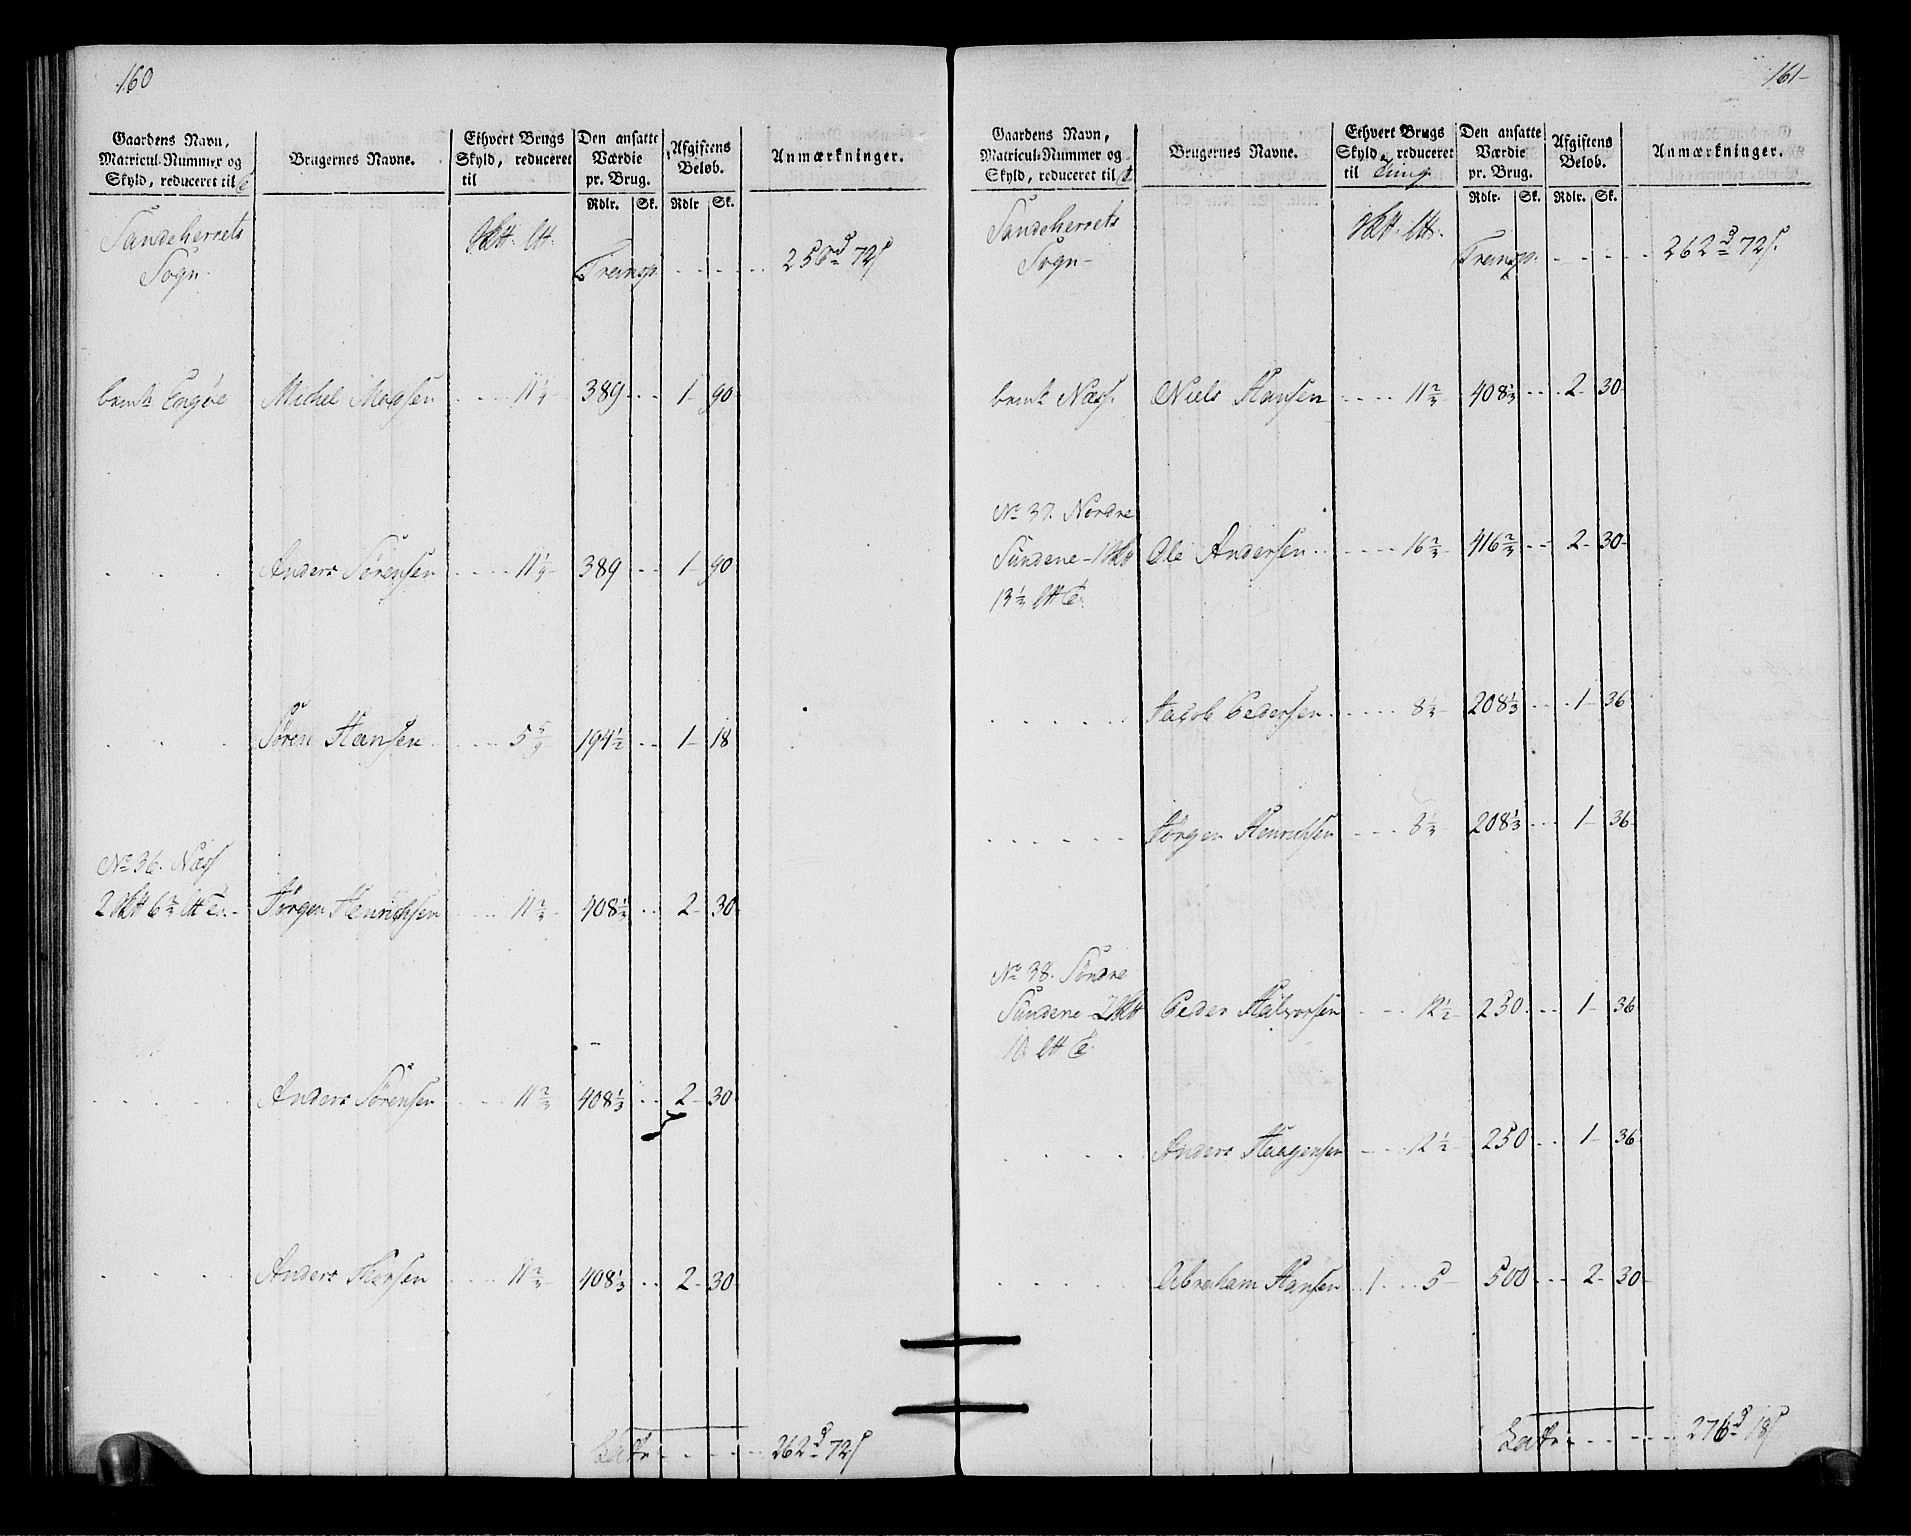 160
Gaardens Navn, Matricul-Nummer og Skyld, reduceret til T
Brugernes Navne.
Ethvert Brugs Skyld, reduceret til
Den ansatte Værdie pr. Brug.
Afgiftens Beløb.
Anmærkninger.
Rdlr. Sk. Rdlr Sk.
Sandeherrets
Sogn
Transp. - - - -
brmk Engøe Michel - - 11 1/9 389 - - 1- 90
- - - Anders Sørensen - - 11 1/9 389 - - 1- 90
- - - Søren Hansen - - 5 5/9 194 1/2 - - 1- 18
No 36. Næss
Jørgen Henrichsen - - 11 2/3 408 1/3 - - 2- 30
- - - Anders Sørensen - - 11 2/3 408 1/3 - - 2- 30
- - - Anders - - 11 2/3 408 1/3 - - 2- 30
Latr. - - - - 262 72
161
Gaardens Navn, Matricul-Nummer og Skyld, reduceret til T
Brugernes Navne.
Ethvert Brugs Skyld, reduceret til Tung
Den ansatte Værdie pr. Brug.
Afgiftens Beløb.
Anmærkninger.
Rdlr. Sk. Rdlr. Sk.
Sandeherrets
Sogn
Transp. - - - - 262 72
brmk Næss. Niels Hansen - - 11 2/3 408 1/3 - - 2- 30
No 37. Nordre
Sundene - Ole Andersen - - 16 2/3 416 2/3 - - 2- 30
13 1/3
- - - Jacob Pedersen - - 8 1/3 208 1/3 - - 1- 36
- - - Jørgen Henrichsen - - 8 1/3 208 1/3 - - 1- 36
No 38. Søndre
Sundene - Peder Halvorsen - - 12 1/2 250 - - 1- 36
10
- - - Anders Haagensen - - 12 1/2 250 - - 1- 36
- - - Abraham Hansen - 1 - 5 500 - - 2- 30
Latr. - - - - 276 18